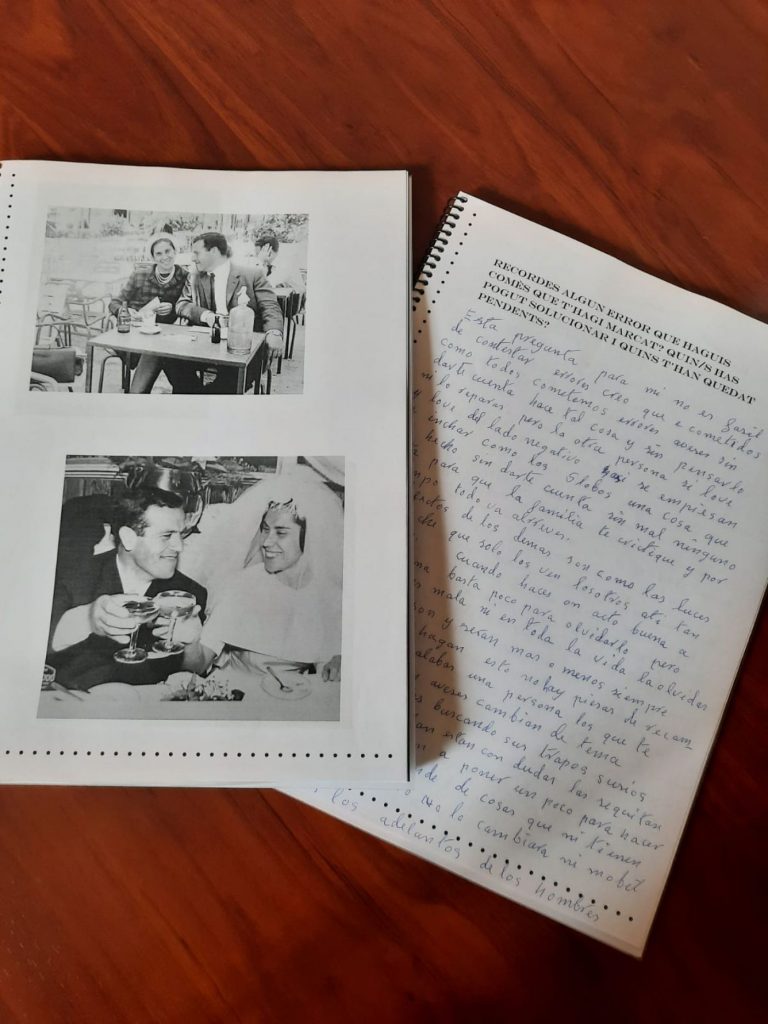 RECORDES ALGUN ERROR QUE HAGUIS
COMÈS QUE T'HAGI MARCAT? QUIN/S HAS
POGUT SOLUCIONAR I QUINS T'HAN QUEDAT
PENDENTS?
Esta pregunta para mi no es fasil
de contestar errores creo que e cometidos
como todos cometemos errores aveses sin
darte cuenta hace tal cosa y sin pensarlo
ni lo reparas pero la otra persona si love
y love del lado negativo y se empiesan
enchar como los Globos una cosa que
hecho sin darte cuenta sin mal ninguno
para que la familia te critique y por
todo va alrreves.
de los demas son como las luces
que solo los ven losotros ati tan
cuando haces on acto buena a
basta poco para olvidarlo pero
mala ni en toda la vida la olvidas
y seran mas o menos siempre
hagan esto no hay piesas de recam
una persona los que te
aveses cambian de tema
buscando sus trapos susios
estan con dudas las requitan
a poner un poco para hacer
de cosas que ni tienen
lo cambiara ni mobil
los adelantos de los hombres